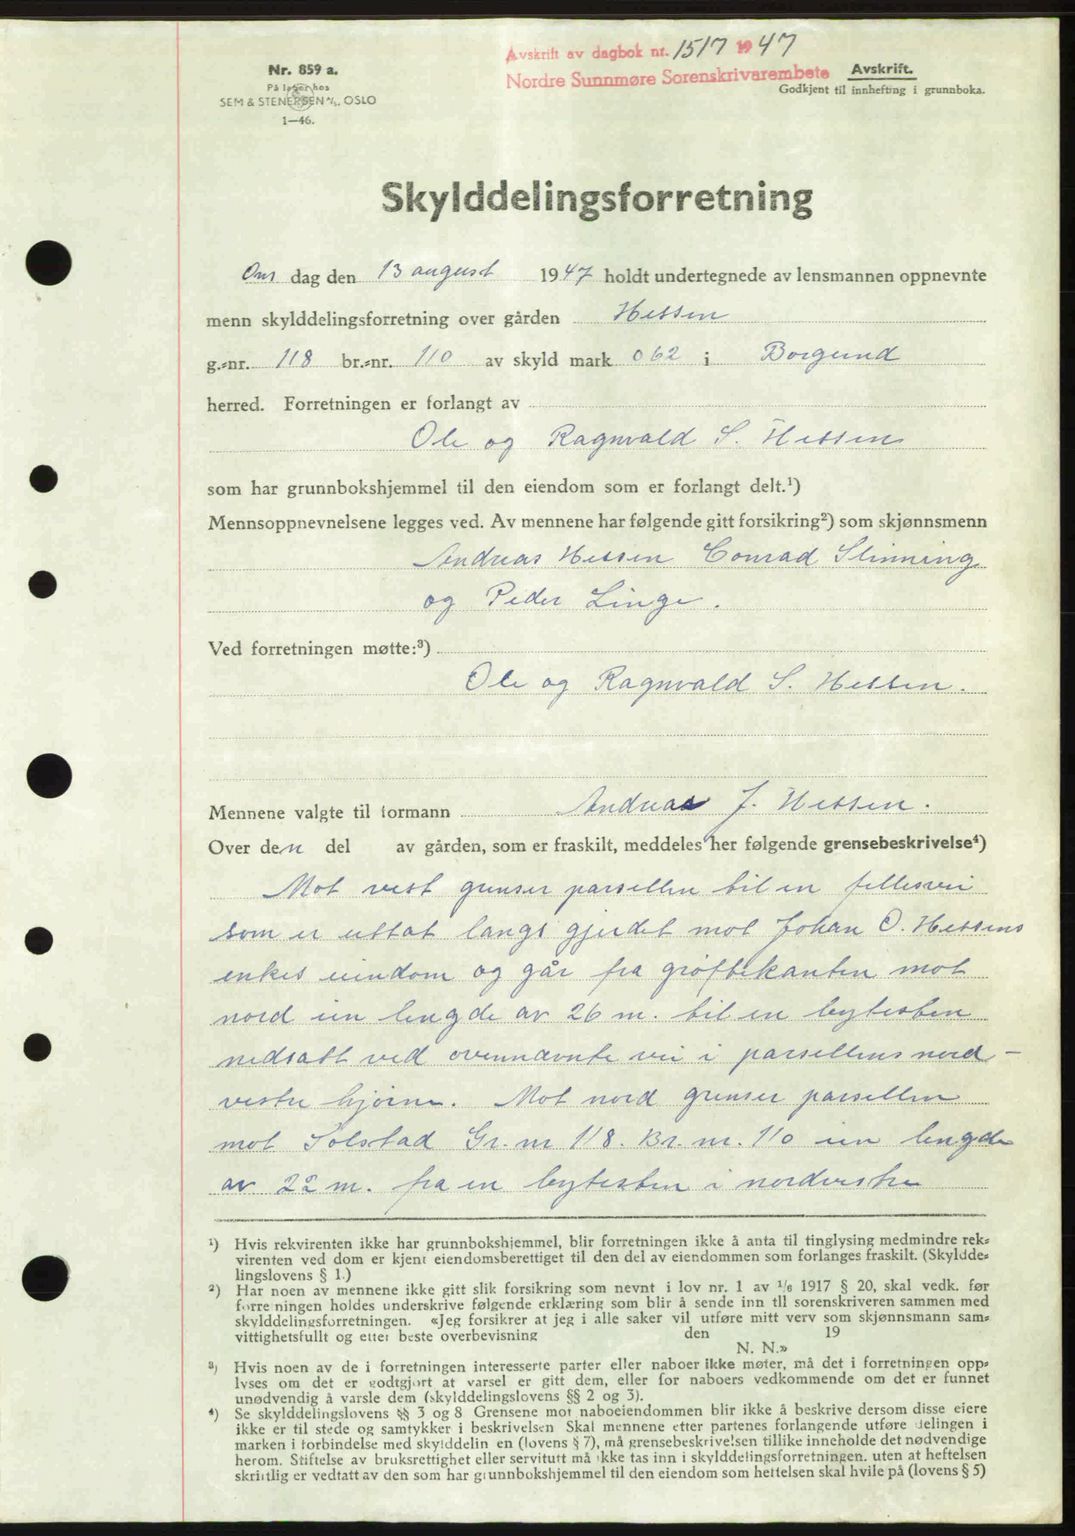 Nr. 859 a.
På lager hos
SEM & STENERSEN A/S, OSLO
1—46.
Avskrift av dagbok nr. 1517 1947
Nordre Sunnmøre Sorenskrivarembete
Avskrift.
Godkjent til innhefting i grunnboka.
Skylddelingsforretning
Ons dag den 13 august 1947 holdt undertegnede av lensmannen oppnevnte
menn skylddelingsforretning over gården Hessen
g.-nr. 118 br.-nr. 110 av skyld mark 062 i Borgund
herred. Forretningen er forlangt av
Ole og Ragnvald S. Hessen
som har grunnbokshjemmel til den eiendom som er forlangt delt.¹)
Mennsoppnevnelsene legges ved. Av mennene har følgende gitt forsikring²) som skjønnsmenn
Andreas Hessen Conrad Slinning
og Peder Linge.
Ved forretningen møtte:³)
Ole og Ragnvald S. Hessen.
Mennene valgte til formann Andreas J. Hessen.
Over den del av gården, som er fraskilt, meddeles her følgende grensebeskrivelse⁴)
Mot vest grenser parsellen til en fellesvei
som er uttat langs gjerdet mot Johan O. Hessens
enkes eiendom og går fra grøftekanten mot
nord i en lengde av 26 m. til en bytesten
nedsatt ved ovennævnte vei i parsellens nord-
vestre hjørne. Mot nord grenser parsellen
mot Solstad Gr. nr 118. Br. nr. 110 i en lengde
av 22 m. fra en bytesten i nordvestre
¹) Hvis rekvirenten ikke har grunnbokshjemmel, blir forretningen ikke å anta til tinglysing medmindre rek-
virenten ved dom er kjent eiendomsberettiget til den del av eiendommen som forlanges fraskilt. (Skyldde-
lingslovens § 1.)
²) Har noen av mennene ikke gitt slik forsikring som nevnt i lov nr. 1 av 1/6 1917 § 20, skal vedk. før
forretningen holdes underskrive følgende erklæring som blir å sende inn til sorenskriveren sammen med
skylddelingsforretningen. «Jeg forsikrer at jeg i alle saker vil utføre mitt verv som skjønnsmann sam-
vittighetsfullt og etter beste overbevisning den 19
N. N.»
³) Hvis noen av de i forretningen interesserte parter eller naboer ikke møter, må det i forretningen opp-
lyses om det er godtgjort at varsel er gitt dem, eller for naboers vedkommende om det er funnet
unødvendig å varsle dem (skylddelingslovens §§ 2 og 3).
⁴) Se skylddelingslovens §§ 3 og 8 Grensene mot naboeiendommen blir ikke å beskrive dersom disse eiere
ikke er til stede og samtykker i beskrivelsen Skal mennene etter partenes forlangende utføre delingen i
marken i forbindelse med skylddelingen (lovens § 7), må grensebeskrivelsen tillike inneholde det nødvendige
herom. Stiftelse av bruksrettighet eller servitutt må ikke tas inn i skylddelingsforretningen, uten at heftelsen
skriftlig er vedtatt av den som har grunnbokshjemmel til den eiendom som heftelsen skal hvile på (lovens § 5)